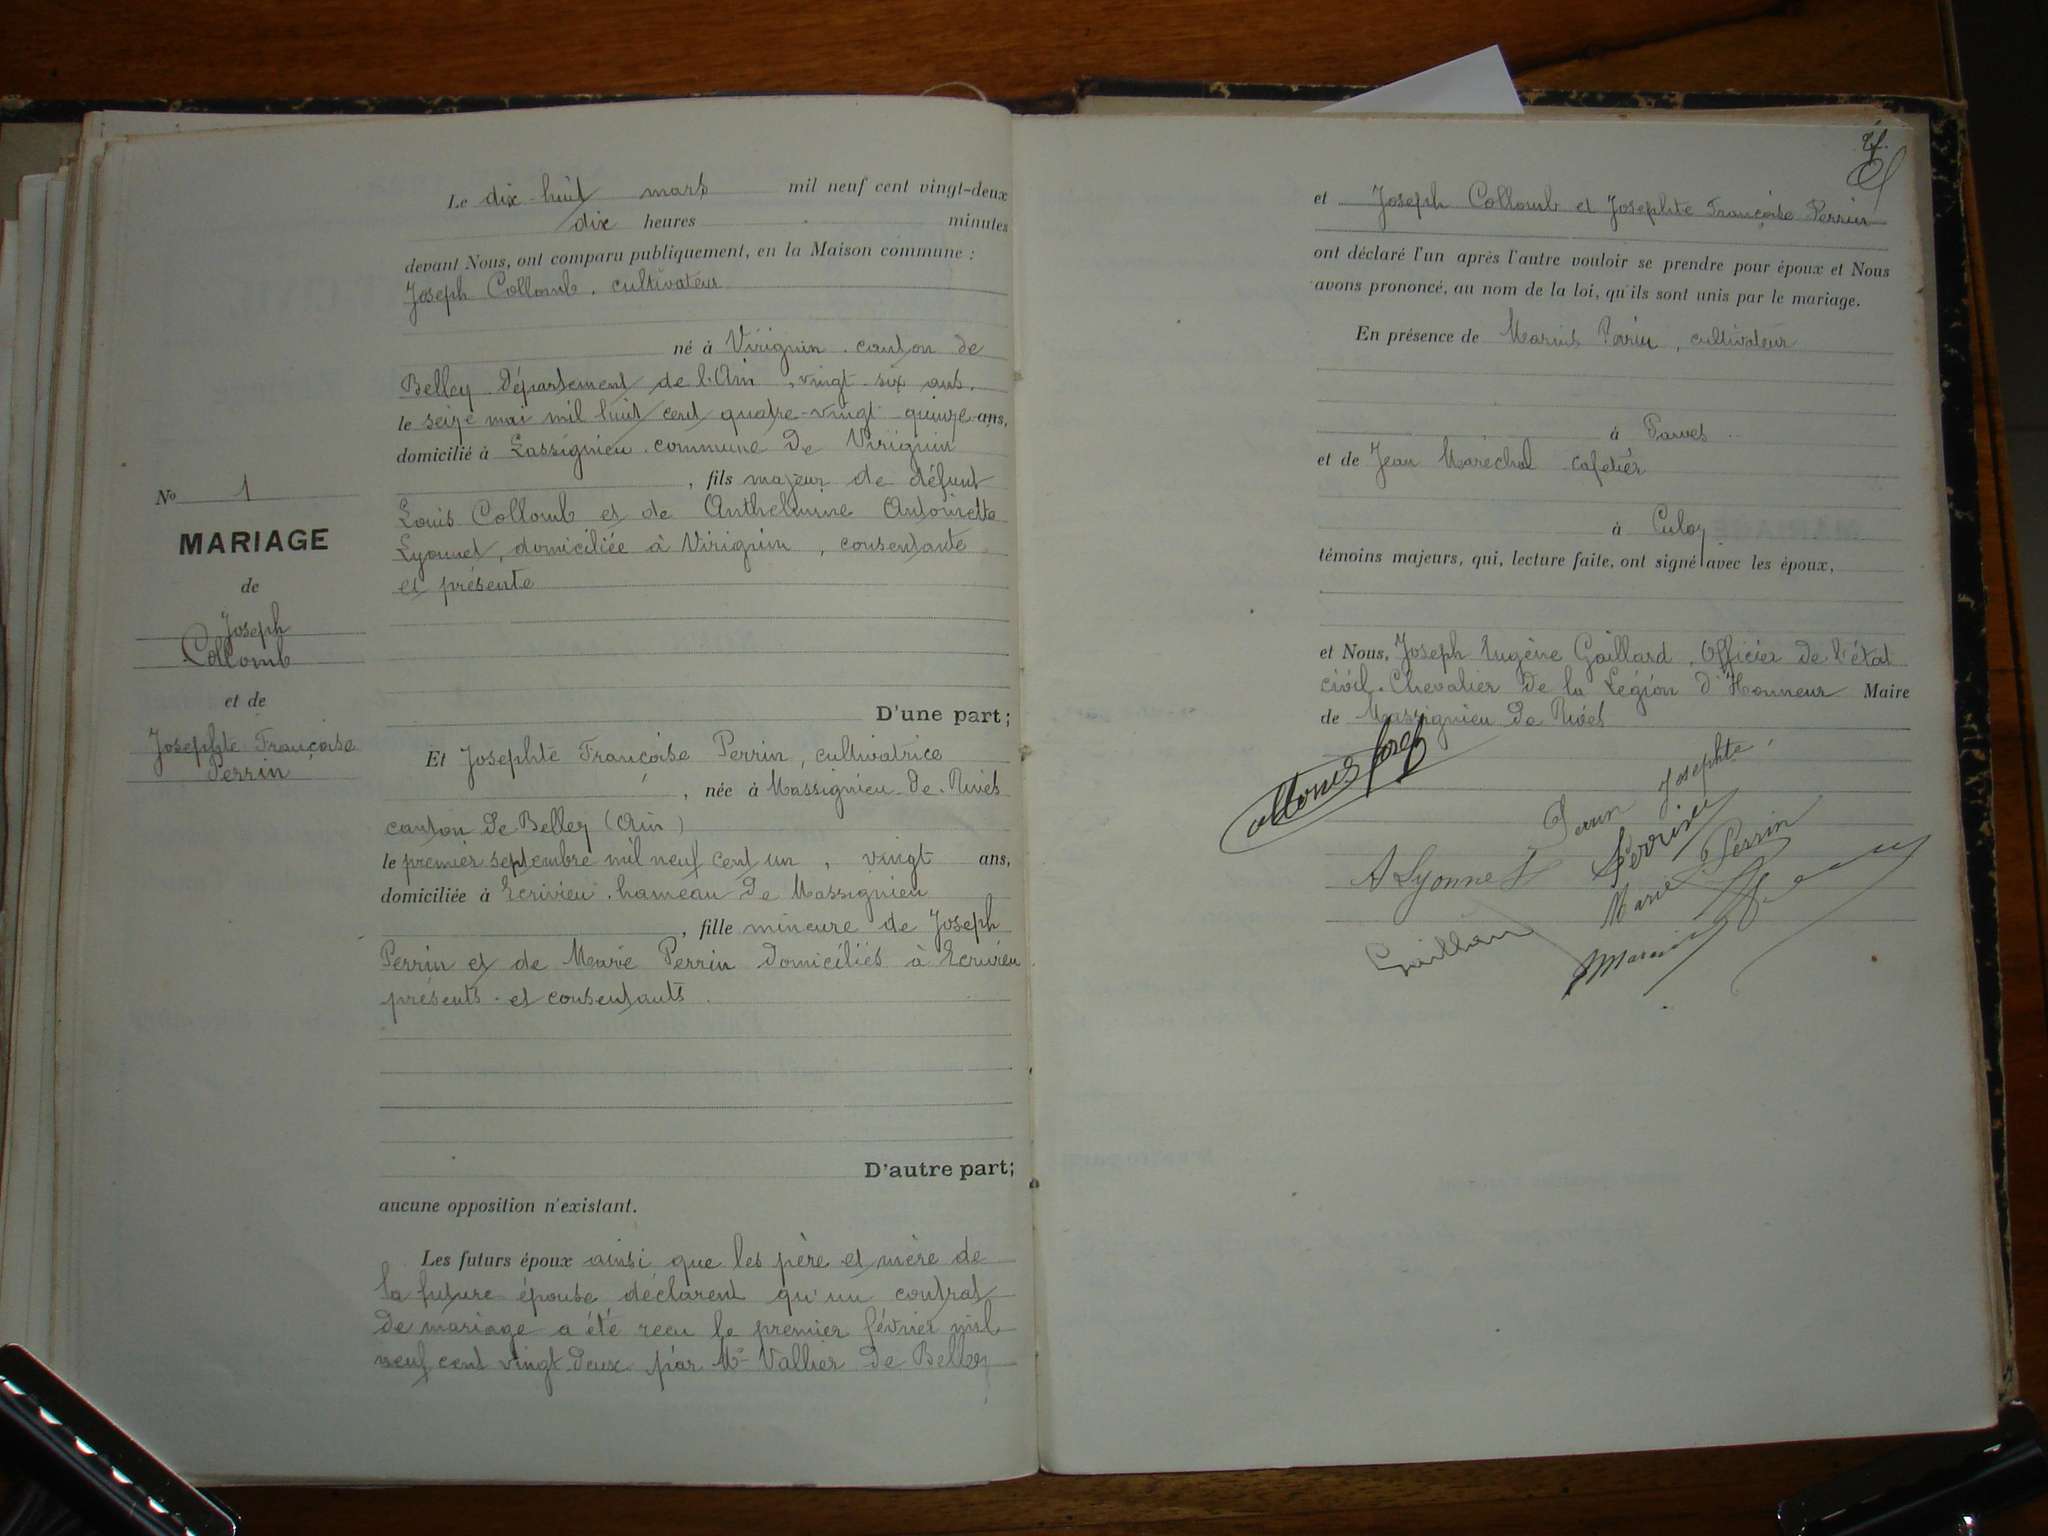 Le dix-huit mars mil neuf cent vingt-deux
dix heures minutes
devant Nous, ont comparu publiquement, en la Maison commune :
Joseph Collomb, cultivateur
né à Virignin canton de
Belley Département de l'Ain, vingt six ans,
le seize mai mil huit cent quatre-vingt quinze ans,
domicilié à Lassignieu commune de Virignin
, fils majeur de défunt
Louis Collomb et de Anthelmine Antoinette
Lyonnet, domiciliée à Virignin, consentante
et présente
D'une part;
Et Josephte Françoise Perrin, cultivatrice
, née à Massignieu de Rives
canton de Belley (Ain)
le premier septembre mil neuf cent un, vingt ans,
domiciliée à Ecrivieu hameau de Massignieu
, fille mineure de Joseph
Perrin et de Marie Perrin domiciliés à Ecrivieu
présents et consentants
D'autre part;
aucune opposition n'existant.
Les futurs époux ainsi que les père et mère de
la future épouse déclarent qu'un contrat
de mariage a été reçu le premier février mil
neuf cent vingt deux par Me Vallier de Belley
No 1
MARIAGE
de
Joseph
Collomb
et de
Josephte Françoise
Perrin
et Joseph Collomb et Josephte Françoise Perrin
ont déclaré l'un après l'autre vouloir se prendre pour époux et Nous
avons prononcé, au nom de la loi, qu'ils sont unis par le mariage.
En présence de Marius Perrin, cultivateur
à Parves
et de Jean Maréchal cafetier
à Culoz
témoins majeurs, qui, lecture faite, ont signé avec les époux,
et Nous, Joseph Eugène Gaillard, Officier de l'état
civil. Chevalier de la Légion d'Honneur Maire
de Massignieu de Rives
Perrin Josephte
A Lyonnet
Marie Perrin
Gaillard